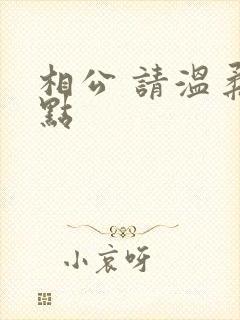 相公 請溫柔
點
小哀呀